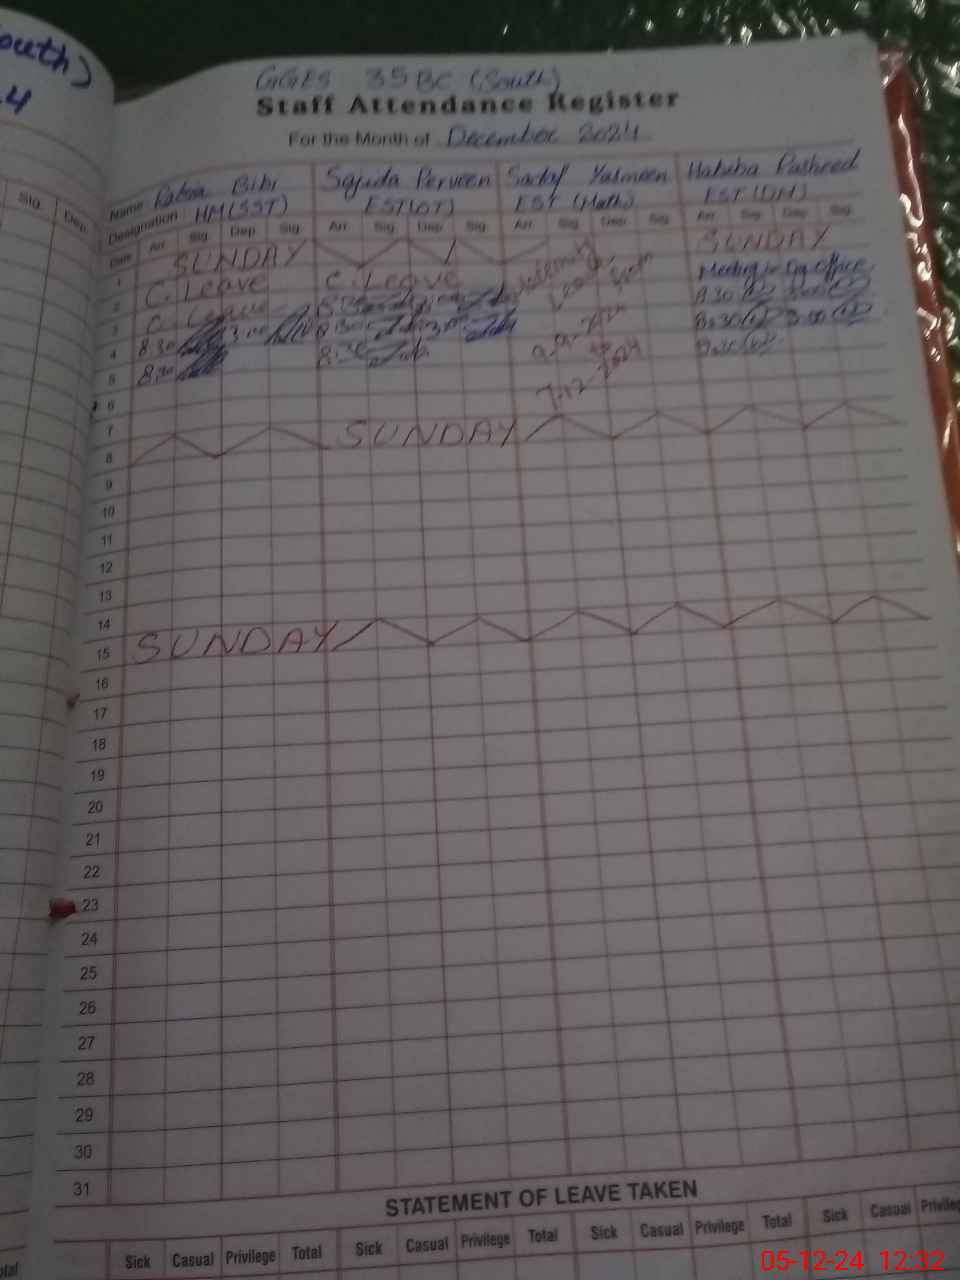 outh)
4
GGES 35 BC (South)
Staff Attendance Register
For the Month of December 2024
Name Rabia Bibi Sajida Perveen Sadaf Yasmeen Habiba Rasheed
Designation HM(SST) EST(OT) EST (Math) EST (DM)
Sig Dep
Date Arr Sig Dep Sig Arr Sig Dep Sig Arr Sig Dep Sig Arr Sig Dep Sig
1 SUNDAY SUNDAY
2 C. Leave C. Leave Meeting in office
3 C. Leave 8:30 Leave from 8:30 3:00
4 8:30 3:00 8:30 8:30 3:00
5 8:30 8:30 7-12-2024
6
7
8 SUNDAY
9
10
11
12
13
14
15 SUNDAY
16
17
18
19
20
21
22
23
24
25
26
27
28
29
30
31
STATEMENT OF LEAVE TAKEN
Sick Casual Privilege Total Sick Casual Privilege Total Sick Casual Privilege Total Sick Casual Privile
otal
05-12-24 12:32